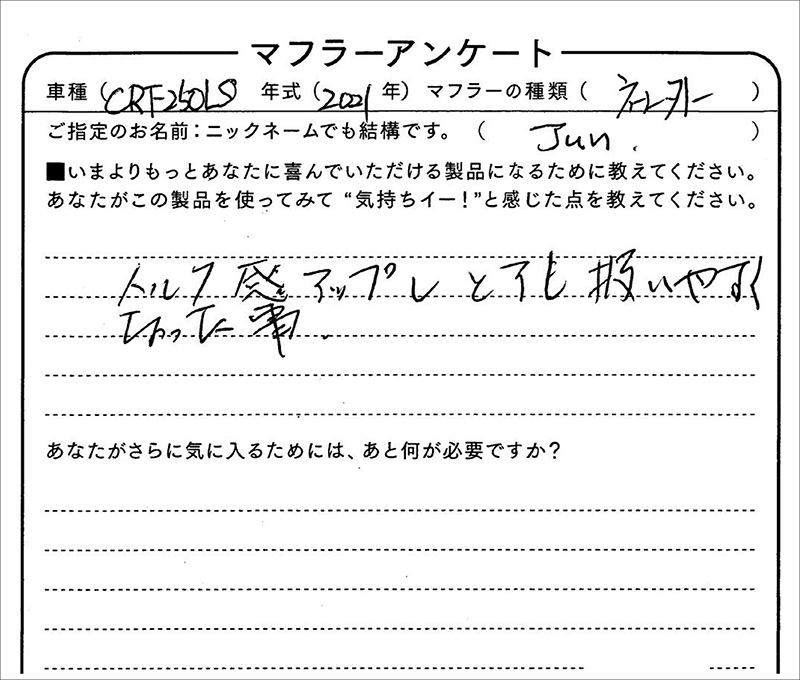 マフラーアンケート
車種（CRF-250LS 年式（2021年）マフラーの種類（　）
ご指定のお名前：ニックネームでも結構です。（Jun.）
■いまよりもっとあなたに喜んでいただける製品になるために教えてください。
あなたがこの製品を使ってみて“気持ちイー！”と感じた点を教えてください。
トルク感アップしとても扱いやすく
なった事.
あなたがさらに気に入るためには、あと何が必要ですか？